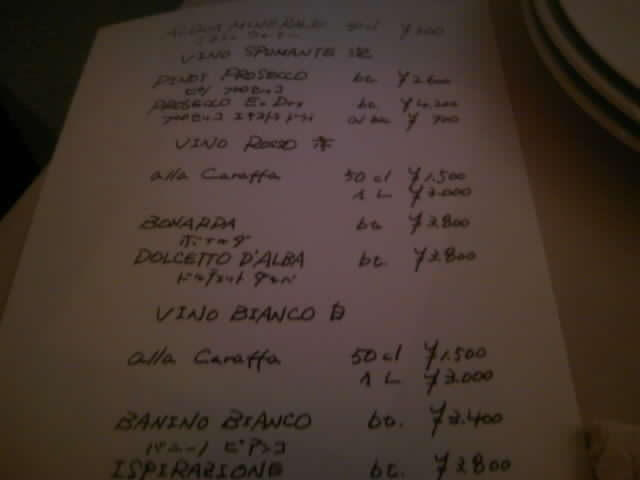 ACQUA MINERALE 50cl ¥500
VINO SPUMANTE 泡
PINOT PROSECCO bt. ¥2600
ピノ プロセッコ
PROSECCO Ex Dry bt. ¥4.200
プロセッコ エキストラ ドライ ¥700
VINO ROSSO 赤
alla Caraffa 50 cl ¥1.500
1 L ¥3.000
BONARDA bt. ¥3800
ボナルダ
DOLCETTO D'ALBA bt. ¥3800
ドルチェット ダルバ
VINO BIANCO 白
alla Caraffa 50 cl ¥1.500
1 L ¥3.000
BANINO BIANCO bt. ¥3.400
バニーノ ビアンコ
ISPIRAZIONE bt. ¥3800